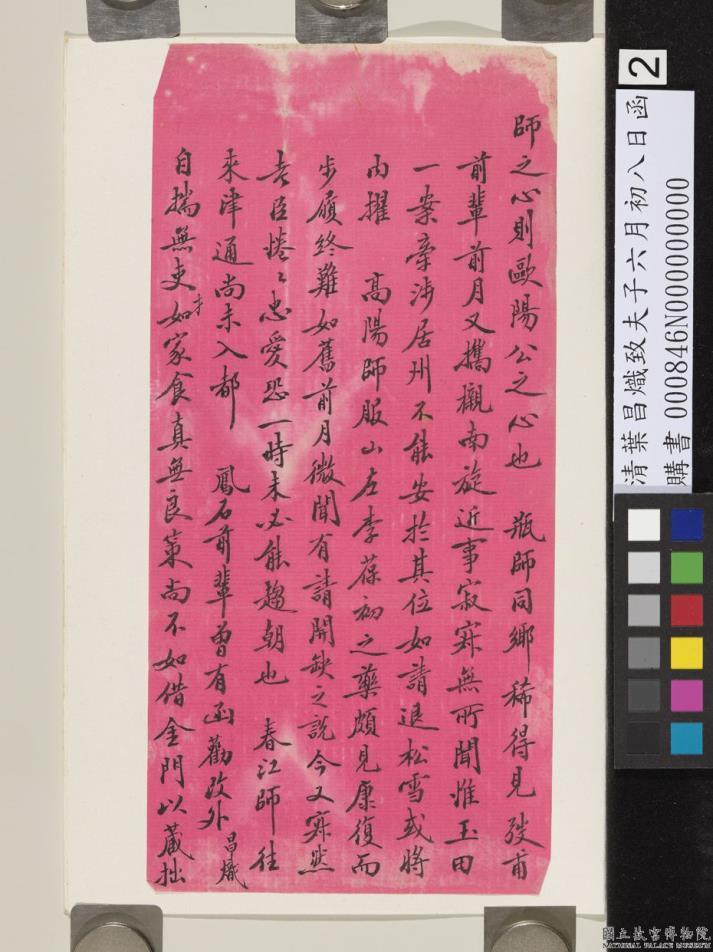 師之心則歐陽公之心也　瓶師同鄉稀得見弢甫
前輩前月又攜櫬南旋近事寂寞無所聞惟玉田
一案牽涉居州不能安於其位如請退松雪或將
內擢　高陽師服山左李葆初之藥頗見康復而
步履終難如舊前月微聞有請開缺之説今又寂然
老臣惓〻忠愛恐一時未必能趨朝也　春江師往
來津通尚未入都　鳳石前輩曾有函勸改外昌熾
自揣無吏才如家食真無良策尚不如借金門以藏拙
2
清葉昌熾致夫子六月初八日函
購書 000846N000000000
國立故宮博物院
NATIONAL PALACE MUSEUM